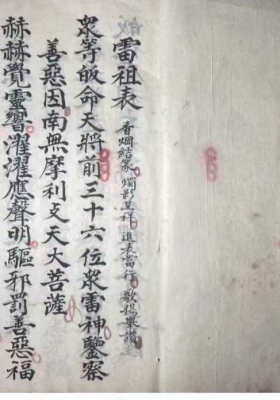 雷祖表 香焗結彩 燭影呈祥 進表當行 歌揚衆讚
衆等皈命天將前三十六位衆雷神鑒察
善惡因南無摩利支天大菩薩
赫赫覺靈響濯濯應聲明驅邪罰善惡福